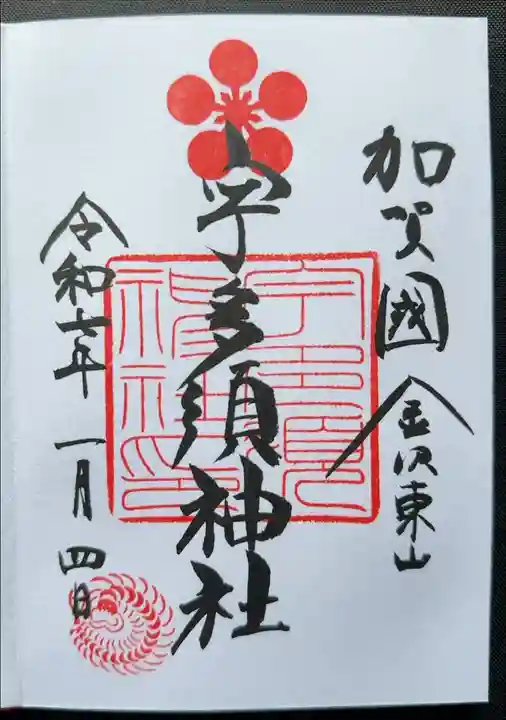 加賀國 金沢東山
宇多須神社
令和六年 一月 四日